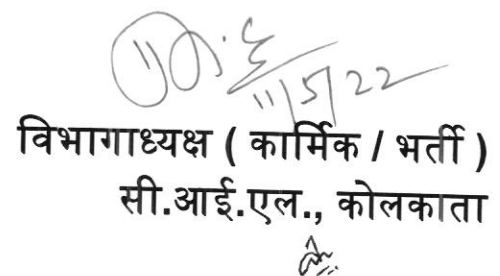 11/5/22
विभागाध्यक्ष ( कार्मिक / भर्ती )
सी.आई.एल., कोलकाता